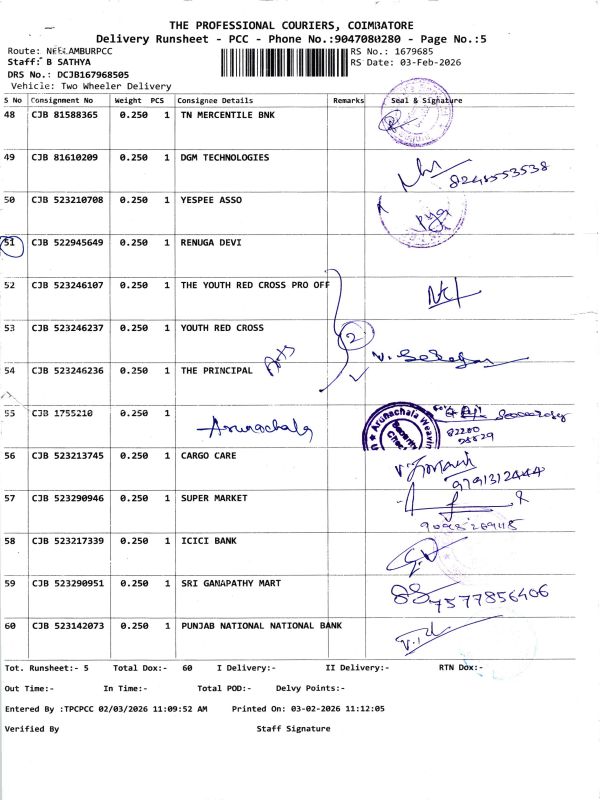 THE PROFESSIONAL COURIERS, COIMBATORE
Delivery Runsheet - PCC - Phone No.:9047080280 - Page No.:5
Route: NEELAMBURPCC
RS No.: 1679685
Staff: B SATHYA
RS Date: 03-Feb-2026
DRS No.: DCJB167968505
Vehicle: Two Wheeler Delivery
S No Consignment No Weight PCS Consignee Details Remarks Seal & Signature
48 CJB 81588365 0.250 1 TN MERCENTILE BNK
49 CJB 81610209 0.250 1 DGM TECHNOLOGIES
8248553538
50 CJB 523210708 0.250 1 YESPEE ASSO
51 CJB 522945649 0.250 1 RENUGA DEVI
52 CJB 523246107 0.250 1 THE YOUTH RED CROSS PRO OFF
53 CJB 523246237 0.250 1 YOUTH RED CROSS 2
54 CJB 523246236 0.250 1 THE PRINCIPAL Arts
55 CJB 1755210 0.250 1 Arunachala
Arunachala Weavin
Security
82280
56 CJB 523213745 0.250 1 CARGO CARE
9791312444
57 CJB 523290946 0.250 1 SUPER MARKET
58 CJB 523217339 0.250 1 ICICI BANK
59 CJB 523290951 0.250 1 SRI GANAPATHY MART
7577856406
60 CJB 523142073 0.250 1 PUNJAB NATIONAL NATIONAL BANK
Tot. Runsheet:- 5 Total Dox:- 60 I Delivery:- II Delivery:- RTN Dox:-
Out Time:- In Time:- Total POD:- Delvy Points:-
Entered By :TPCPCC 02/03/2026 11:09:52 AM Printed On: 03-02-2026 11:12:05
Verified By Staff Signature